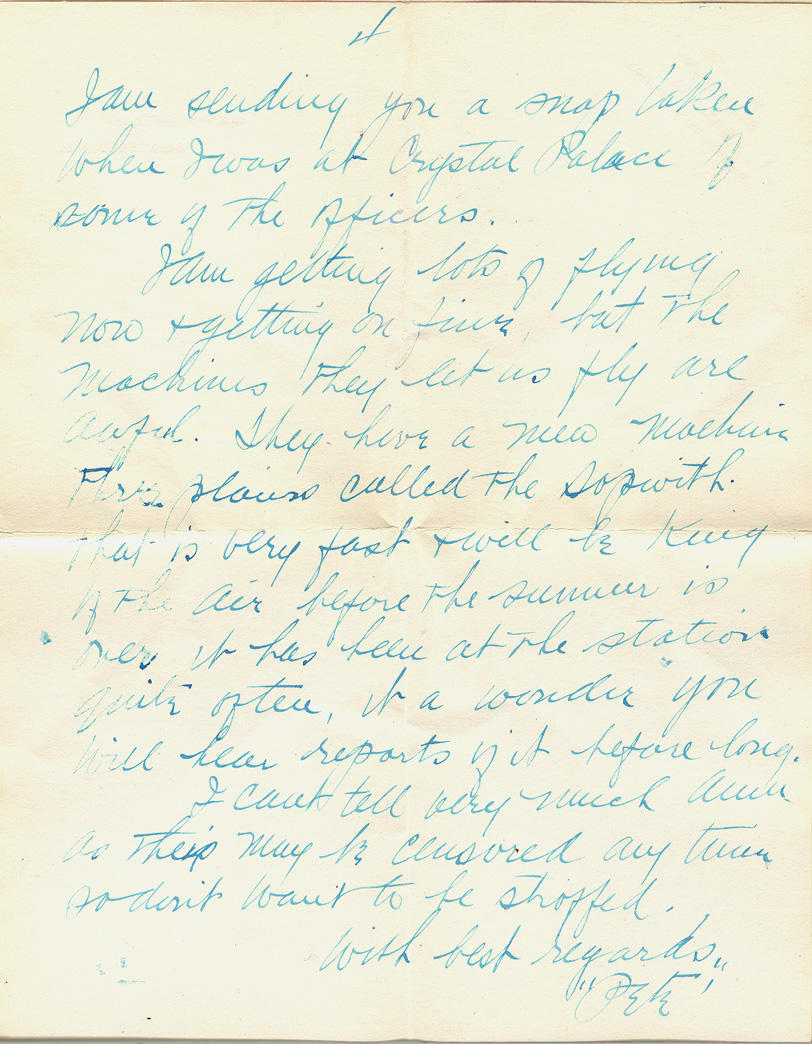 4
I am sending you a snap taken
when I was at Crystal Palace of
some of the officers.
I am getting lots of flying
now + getting on fine, but the
machines they let us fly are
awful. They have a new machine
three planes called the Sopwith.
that is very fast + will be King
of the air before the summer is
over, it has been at the station
quite often, it a wonder you
will hear reports of it before long.
I cant tell very much Ann
as this may be censored any time
so don't want to be stopped.
With best regards,,
"Pete"